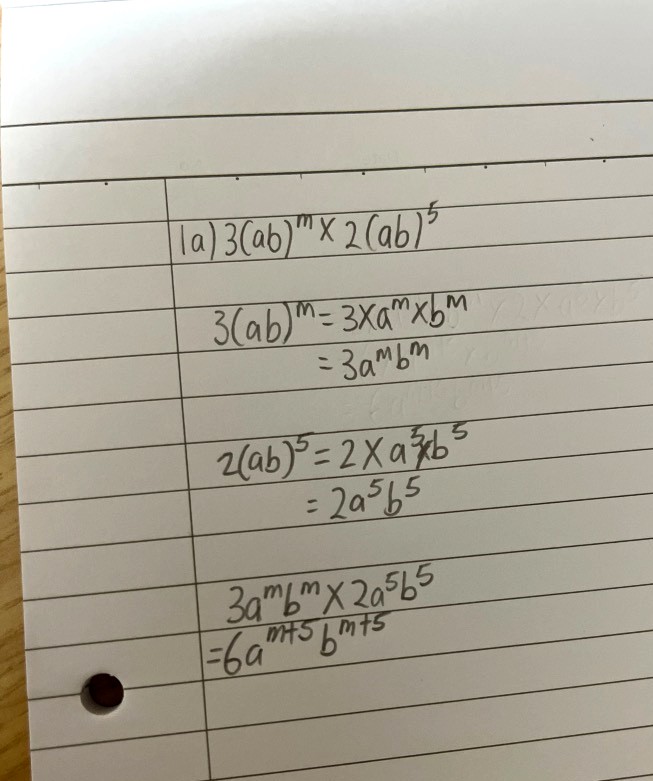 1a) 3(ab)^m × 2(ab)^5
3(ab)^m = 3×a^m×b^m
= 3a^m b^m
2(ab)^5 = 2×a^5×b^5
= 2a^5 b^5
3a^m b^m × 2a^5 b^5
=6a^{m+5} b^{m+5}